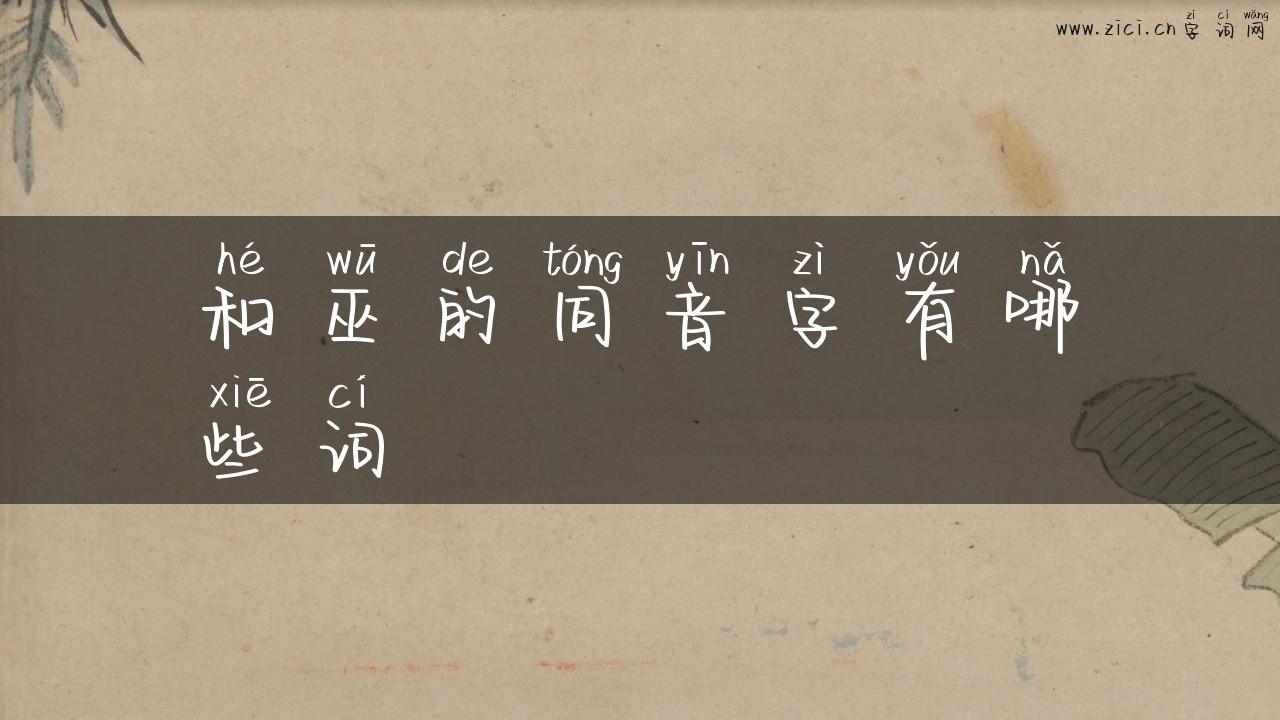 zì cí wǎng
www.zici.cn 字 词 网
hé wū de tóng yīn zì yǒu nǎ
和 巫 的 同 音 字 有 哪
xiē cí
些 词